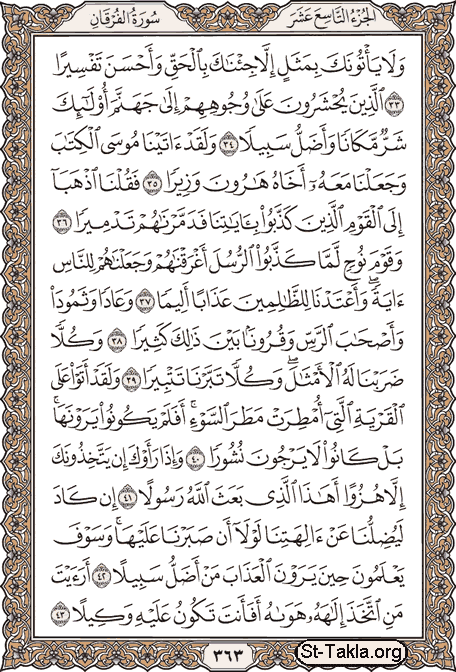 سُورَةُ الفُرْقَانِ
الجُزْءُ التَّاسِعَ عَشَرَ
وَلَا يَأْتُونَكَ بِمَثَلٍ إِلَّا جِئْنَٰكَ بِٱلْحَقِّ وَأَحْسَنَ تَفْسِيرًا
٣٣ ٱلَّذِينَ يُحْشَرُونَ عَلَىٰ وُجُوهِهِمْ إِلَىٰ جَهَنَّمَ أُو۟لَٰٓئِكَ
شَرٌّ مَّكَانًا وَأَضَلُّ سَبِيلًا ٣٤ وَلَقَدْ ءَاتَيْنَا مُوسَى ٱلْكِتَٰبَ
وَجَعَلْنَا مَعَهُۥٓ أَخَاهُ هَٰرُونَ وَزِيرًا ٣٥ فَقُلْنَا ٱذْهَبَآ
إِلَى ٱلْقَوْمِ ٱلَّذِينَ كَذَّبُوا۟ بِـَٔايَٰتِنَا فَدَمَّرْنَٰهُمْ تَدْمِيرًا ٣٦
وَقَوْمَ نُوحٍ لَّمَّا كَذَّبُوا۟ ٱلرُّسُلَ أَغْرَقْنَٰهُمْ وَجَعَلْنَٰهُمْ لِلنَّاسِ
ءَايَةً ۖ وَأَعْتَدْنَا لِلظَّٰلِمِينَ عَذَابًا أَلِيمًا ٣٧ وَعَادًا وَثَمُودَا۟
وَأَصْحَٰبَ ٱلرَّسِّ وَقُرُونًۢا بَيْنَ ذَٰلِكَ كَثِيرًا ٣٨ وَكُلًّا
ضَرَبْنَا لَهُ ٱلْأَمْثَٰلَ ۖ وَكُلًّا تَبَّرْنَا تَتْبِيرًا ٣٩ وَلَقَدْ أَتَوْا۟ عَلَى
ٱلْقَرْيَةِ ٱلَّتِىٓ أُمْطِرَتْ مَطَرَ ٱلسَّوْءِ ۚ أَفَلَمْ يَكُونُوا۟ يَرَوْنَهَا ۚ
بَلْ كَانُوا۟ لَا يَرْجُونَ نُشُورًا ٤٠ وَإِذَا رَأَوْكَ إِن يَتَّخِذُونَكَ
إِلَّا هُزُوًا أَهَٰذَا ٱلَّذِى بَعَثَ ٱللَّهُ رَسُولًا ٤١ إِن كَادَ
لَيُضِلُّنَا عَنْ ءَالِهَتِنَا لَوْلَآ أَن صَبَرْنَا عَلَيْهَا ۚ وَسَوْفَ
يَعْلَمُونَ حِينَ يَرَوْنَ ٱلْعَذَابَ مَنْ أَضَلُّ سَبِيلًا ٤٢ أَرَءَيْتَ
مَنِ ٱتَّخَذَ إِلَٰهَهُۥ هَوَىٰهُ أَفَأَنتَ تَكُونُ عَلَيْهِ وَكِيلًا ٤٣
٣٦٣
St-Takla.org